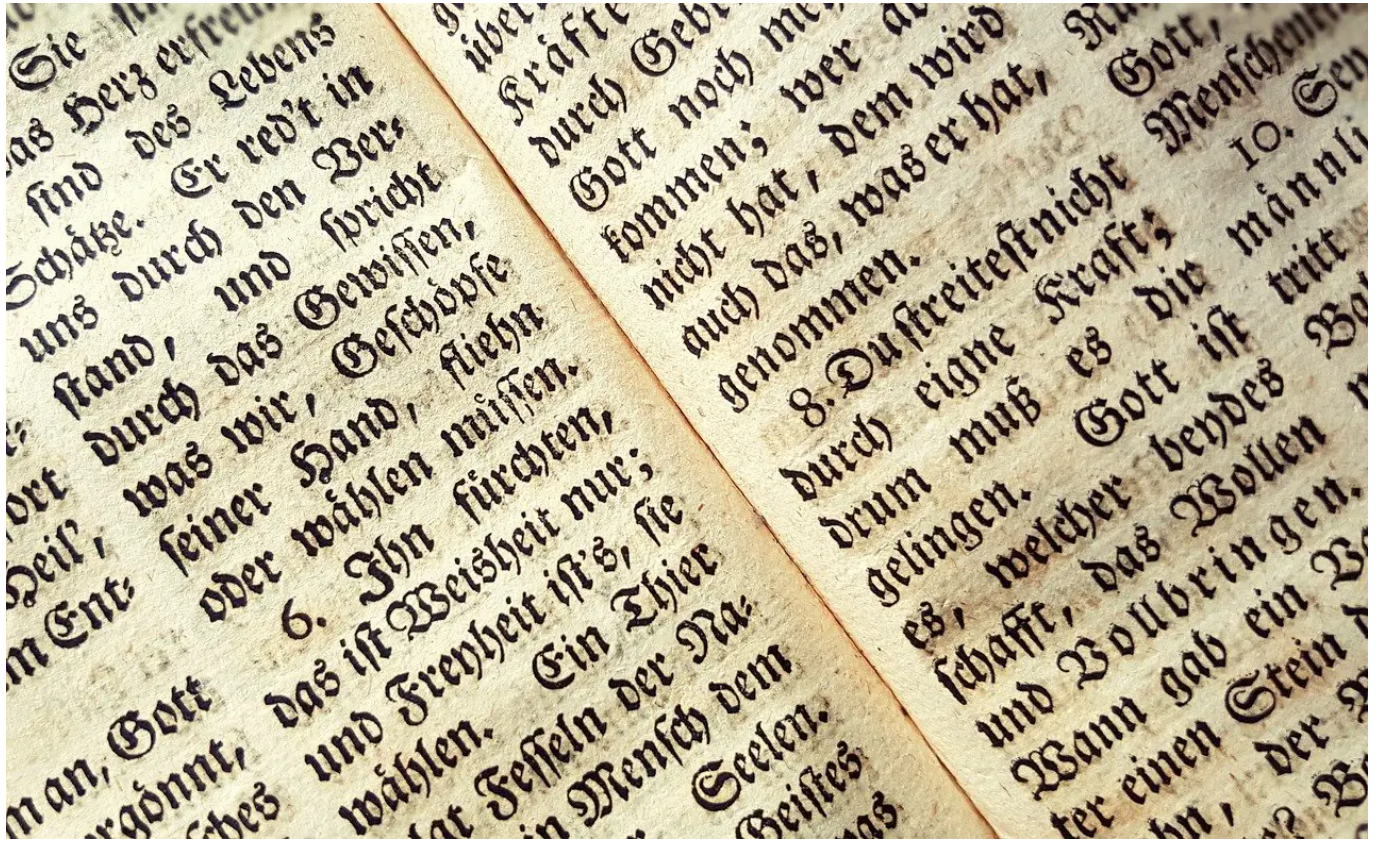 ort
Heil',
Ent-
an, Gott
Sie
das Herz erfreun
sind des Lebens
Schätze. Er red't in
uns durch den Ver-
stand, und spricht
durch das Gewissen,
was wir, Geschöpfe
seiner Hand, fliehn
oder wählen müssen.
6. Ihn fürchten,
das ist Weisheit nur;
und Freyheit ist's, sie
wählen. Ein Thier
Fesseln der Na-
Mensch dem
Seelen.
Geistes
Kräfte
durch
Gott noch
kommen; wer
nicht hat, dem wird
auch das, was er hat,
genommen.
8. Du streitest nicht
durch eigne Kraft;
drum muß es dir
gelingen. Gott ist
es, welcher beydes
schafft, das Wollen
und Vollbringen.
Wann gab ein
ter einen Stein
der
Gott,
10.
männli
tritt